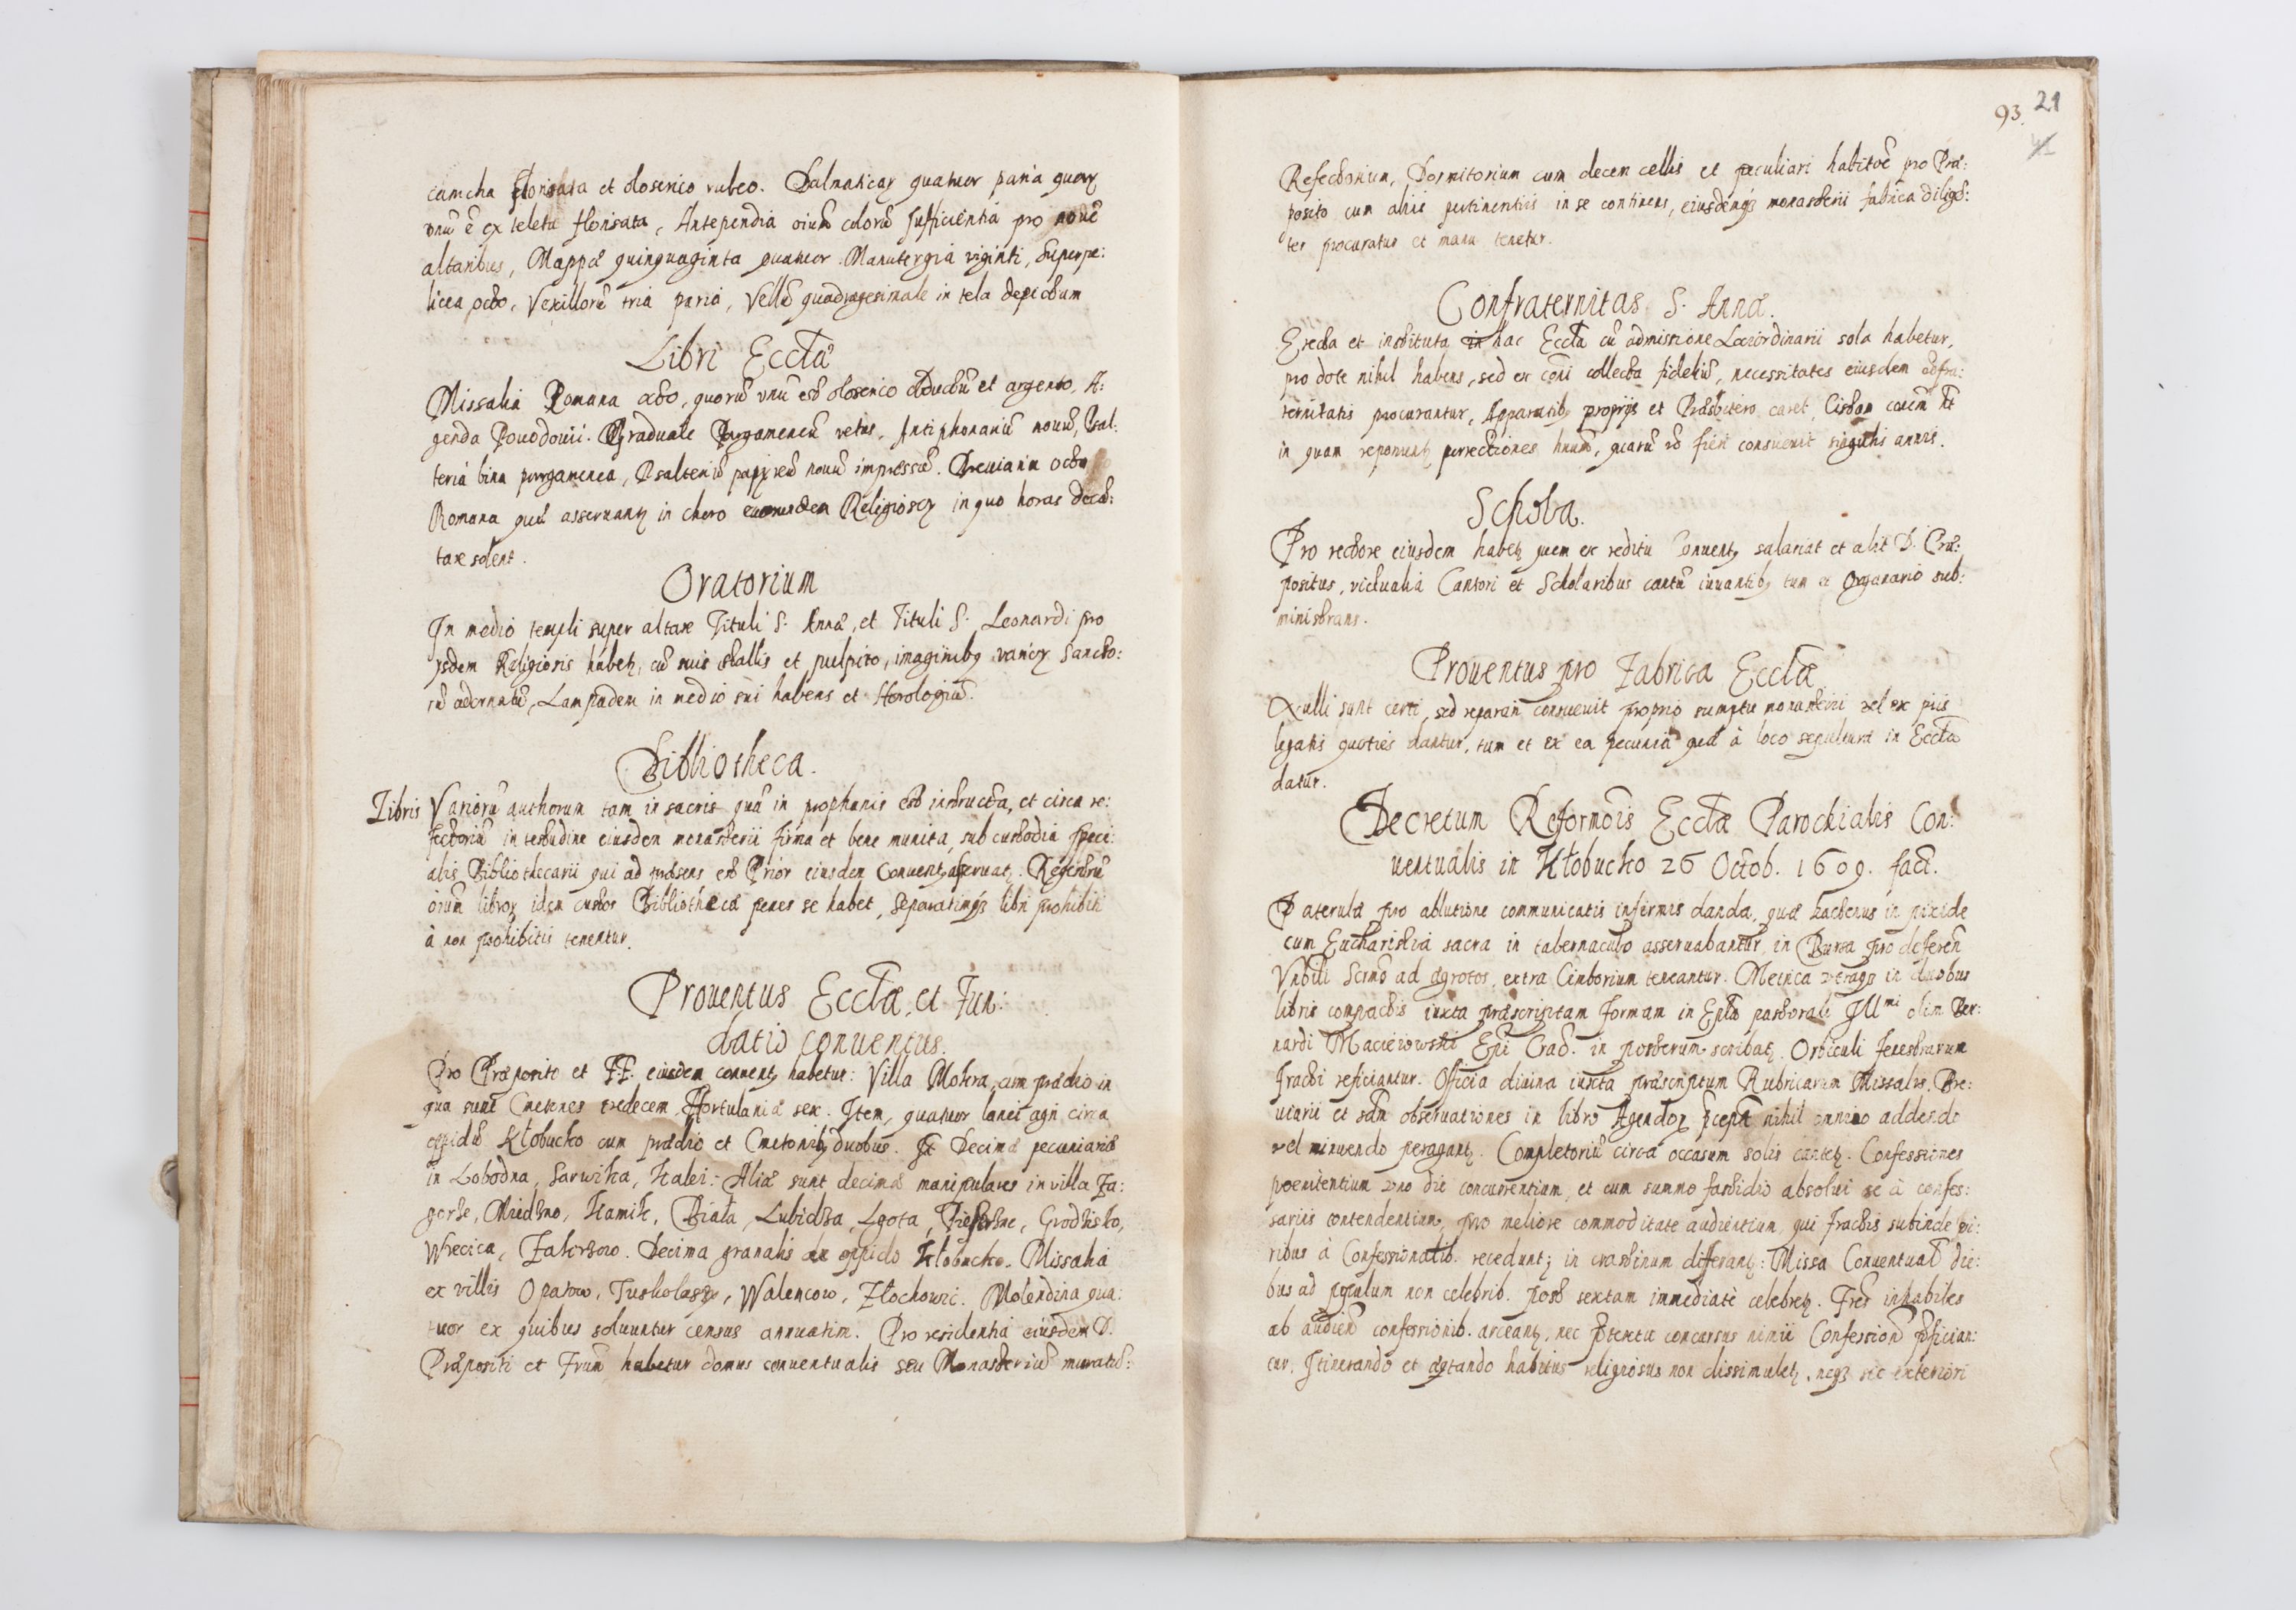 camcha florisata et olosericо rubeo. Dalmaticaꝝ quatuor paria quoꝝ
vnū ē ex teletu florisata, Antependia oīum colorū sufficientia pro nouē
altaribus, Mappæ quinquaginta quatuor. Manutergia viginti, Superpe:
licea octo, Vexillorū tria paria, Vellū quadragesimale in tela depictum
Libri Eccłæ
Missalia Romana octo, quorū vnū est olosericо obductū et argento, A:
genda Pouodouii. Graduale Pargameneū vetus, Antiphonariū nouū, Psal:
teria bina pargamenea, Psalteriū papyreū nouū impressū. Breuiaria octo
Romana quæ asseruantꝫ in choro eorundem Religiosoꝝ in quo horas decā:
tare solent.
Oratorium
In medio templi super altare Tituli S. Annæ, et Tituli S. Leonardi pro
ysdem Religiosis habetꝫ, cū suis stallis et pulpito, imaginibꝫ varioꝝ Sancto:
rū adornatū, Lampadem in medio sui habens et Horologiū.
Bibliotheca.
Libris Variorū authorum tam in sacris quā in prophanis est instructa, et circa re:
fectoriū in testudine eiusdem monasterii firma et bene munita, sub custodia speci:
alis Bibliothecarii qui ad præsens est Prior eiusdem Conuentꝫ asseruatꝫ. Regestrū
oīum libroꝝ idem custos Bibliothecæ penes se habet, Separatimqꝫ libri prohibiti
à non prohibitis tenentur.
Prouentus Eccłæ, et Fun:
datio conuentus.
Pro Præposito et F.F. eiusdem conuentꝫ habetur: Villa Mokra, cum prædio in
qua sunt Cmetones tredecem, Hortulaniæ sex. Item, quatuor lanei agri circa
oppidū Kłobucko cum prædio et Cmetonibꝫ duobus. Itē Decimæ pecuniariæ
in Lobodna, Sarwika, Kalei: Aliæ sunt decimæ manipulares in villa Za:
gorze, Miedzno, Kamik, Biała, Lubidza, Lgota, Grodzisko,
Wręcica, Zakrzow. Decima granalis ex oppido Kłobucko. Missalia
ex villis Opatow, Walencow, Złochowic. Molendina qua:
tuor ex quibus soluuntur census annuatim. Pro residentia eiusdem D.
Præpositi et Frum̄ habetur domus conuentualis seu Monasteriū muratū:
93. 21
Refectorium, Dormitorium cum decem cellis et peculiari habitōe pro Præ:
posito cum aliis pertinentiis in se continens, eiusdemqꝫ monasterii fabrica diligē:
ter procuratur et manu tenetur.
Confraternitas S. Annæ.
Erecta et instituta in hac Eccła cū admissione Loci ordinarii sola habetur,
pro dote nihil habens, sed ex cōni collecta fidelium, necessitates eiusdem cōfra:
ternitatis procurantur, Apparatibꝫ proprijs et Præsbitero caret, Cistam tamen hēt
in quam reponuntꝫ, quarū rō fieri consueuit singulis annis.
Schola.
Pro rectore eiusdem habetꝫ quem ex reditu Conuentꝫ salariat et alit D. Præ:
positus, victualia Cantori et Scholaribus cantū iuuantibꝫ tum et Organario sub:
ministrans.
Prouentus pro Fabrica Eccłæ
Nulli sunt certi, sed reparari consueuit proprio sumptu monasterii vel ex piis
legatis quoties dantur, tum et ex ea pecunia quæ à loco sepulturæ in Eccła
datur.
Decretum Reformōis Eccłæ Parochialis Con:
uentualis in Kłobucko 26 Octob. 1609. fact.
Paterula pro ablutione communicatis infirmis danda, quæ hactenus in pixide
cum Eucharistia sacra in tabernaculo asseruabantur, in Bursa pro deferen̄
Vnbili Scrmō ad ægrotos, extra Cimborium teneantur. Metrica vtraqꝫ in duobus
libris compactis iuxta præscriptam formam in Epłā pastorali Illmi olim Ber:
nardi Macieiowski Epī Crac̄. in posterum scribatꝫ. Orbiculi fenestrarum
fracti reficiantur. Officia diuina iuxta præscriptum Rubricarum Missalis, Bre:
uiarii et scdm̄ obseruationes in libro Agendoꝝ nihil omnino addendo
vel minuendo peragantꝫ. Completoriū circa occasum solis cantetꝫ. Confessiones
poenitentium vno die concurrentium, et cum summo fastidio absolui se à confes:
sariis contendentium, pro meliore commoditate audientium qui fractis subinde vi:
ribus à Confessionalib. recedunt; in crastinum differantꝫ: Missa Conuentual̄ die:
bus ad populum non celebrib. post sextam immediatè celebretꝫ. Fres̄ inhabiles
ab audien̄ confessionib. arceantꝫ, nec concursus nimii Confession̄ pfician:
tur. Itinerando et habitus religiosus non dissimuletꝫ, neqꝫ sic exteriori